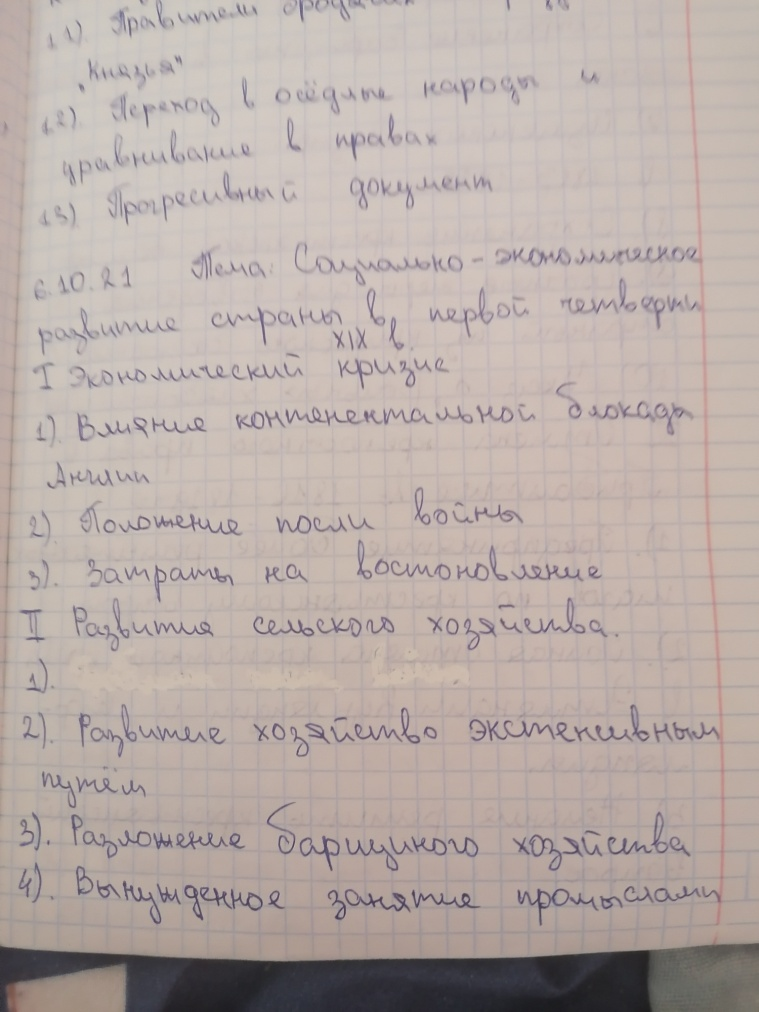 11). Правители
„Князья"
12). Переход в осёдлые народы и
уравнивание в правах
13) Прогресивный документ
6.10.21 Тема: Социально-экономическое
развитие страны в первой четверти
XIX в.
I Экономический кризис
1). Влияние контенентальной блокады
Англии
2) Положение посли войны
3). Затраты на востоновление
II Развития сельского хозяйства.
1).
2). Развитие хозяйство экстенсивным
путём
3). Разложение барщиного хозяйства
4). Вынужденное занятие промыслами